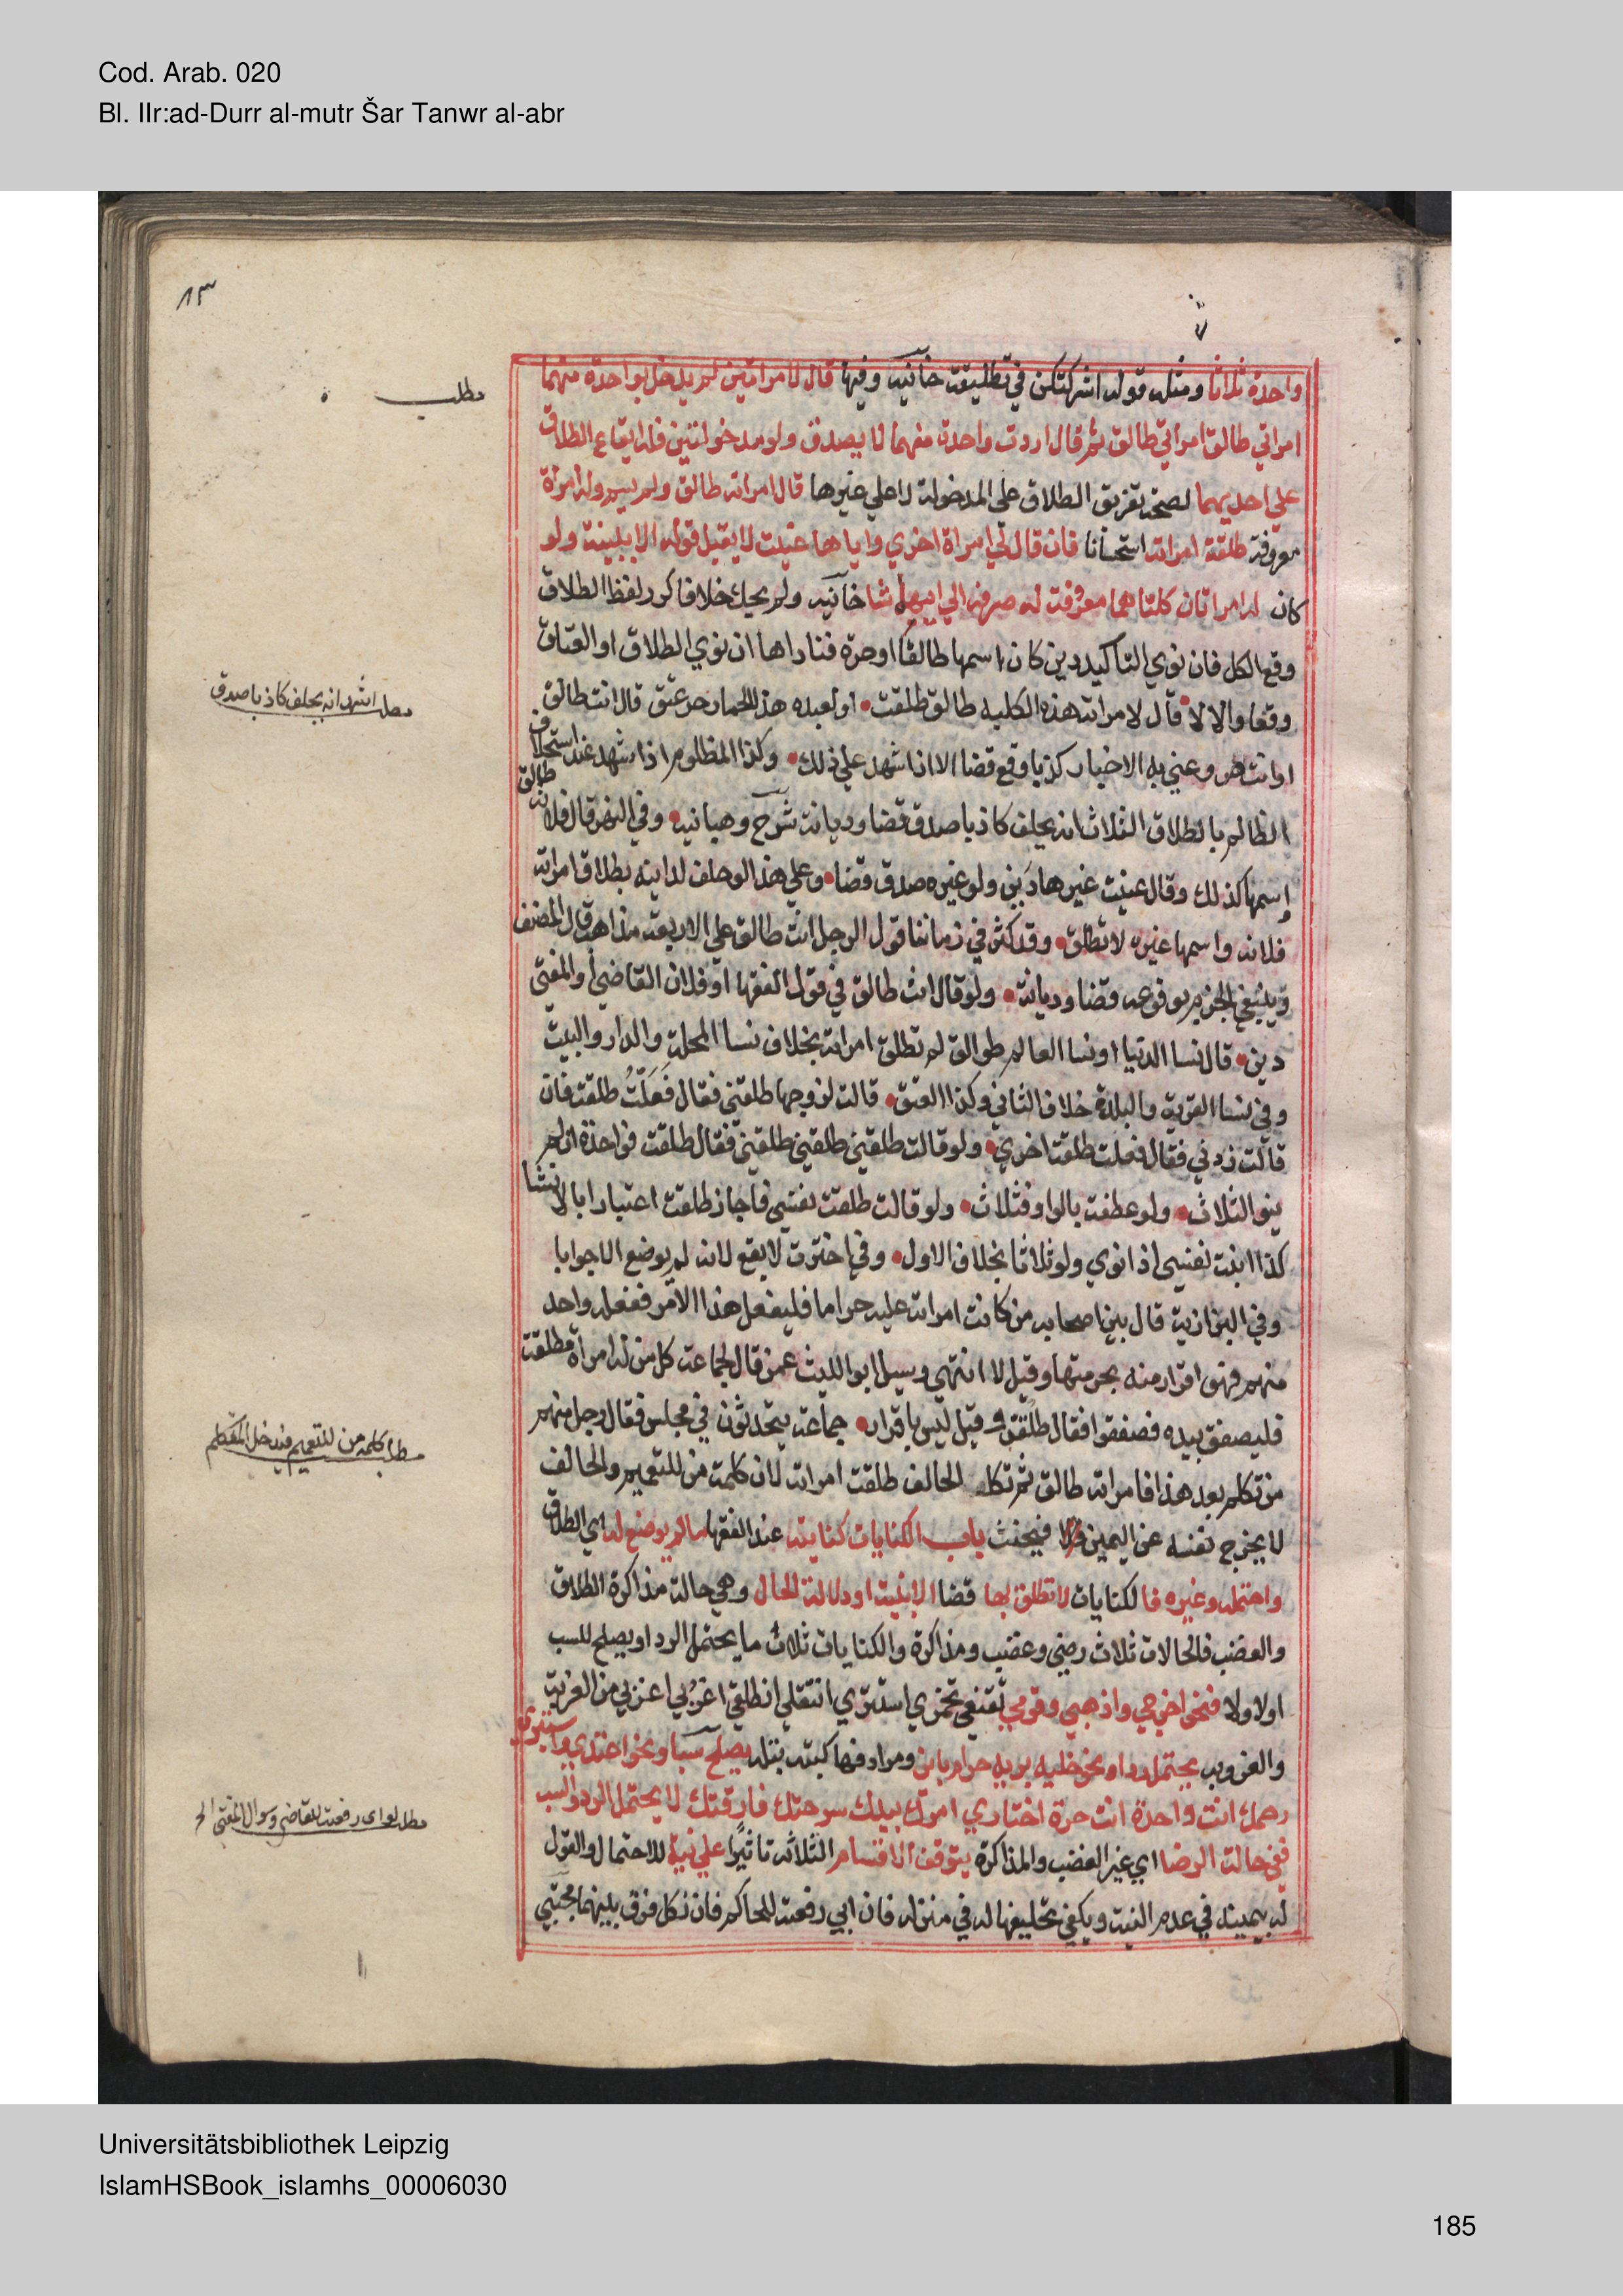 Cod. Arab. 020
Bl. IIr:ad-Durr al-mutr Šar Tanwr al-abr
٨٣
واحدة ثلاثا ومثله قوله اشركتكن في تطليقة خانيه وفيها قال لامراتين لم يدخل بواحدة منهما
مطلب
امراتي طالق امراتي طالق ثم قال اردت واحدة منهما لا يصدق ولو مدخولتين فله ايقاع الطلاق
علي احديهما لصحة تفريق الطلاق علي المدخولة لا علي غيرها قال امراته طالق ولم يسم وله امراة
معروفة طلقة امراته استحسانا فان قال لي امراة اخري واياها عنيت لا يقبل قوله الا ببينة ولو
كان له امراتان كلتاهما معروفة له صرفه الي ايهما شا خانيه ولم يحك خلافا كرر لفظ الطلاق
وقع الكل فان نوي التاكيد دين كان اسمها طالقا او حرة فناداها ان نوي الطلاق او العتاق
مطلب اشهد انه يحلف كاذبا صدق
وقعا والا لا قال لامراته هذه الكلبه طالق طلقت او لعبده هذا الحمار حر عتق قال انت طالق
او انت حر وعني به الاخبار كذبا وقع قضا الا اذا اشهد علي ذلك وكذا المظلوم اذا اشهد عند استحلاف
الظالم بالطلاق الثلاث انه يحلف كاذبا صدق قضا وديانة شرح وهبانيه وفي النهر قال فلانه طالق
اسمها كذلك وقال عنيت غيرها دين ولو غيره صدق قضا وعلي هذا لو حلف لداينه بطلاق امراته
فلانه واسمها غيره لا تطلق وقد كثر في زماننا قول الرجل انت طالق علي الاربعة مذاهب قال المصنف
وينبغي الجزم بوقوعه قضا وديانة ولو قال انت طالق في قول الفقها او فلان القاضي او المفتي
دين قال نسا الدنيا او نسا العالم طوالق لم تطلق امراته بخلاف نسا المحلة والدار والبيت
وفي نسا القرية والبلدة خلاف الثاني وكذا العتق قالت لزوجها طلقني فقال فعلت طلقت فان
قالت زدني فقال فعلت طلقت اخري ولو قالت طلقني طلقني طلقني فقال طلقت فواحدة ان لم
ينو الثلاث ولو عطفت بالواو فثلاث ولو قالت طلقت نفسي فاجاز طلقت اعتبارا بالانشا
كذا ابنت نفسي اذا نوي ولو ثلاثا بخلاف الاول وفي اخترت لا يقع لانه لم يوضع الا جوابا
وفي البزازية قال بين اصحابه من كانت امراته عليه حراما فليفعل هذا الامر ففعله واحد
منهم فهو اقرار منه بحرمتها وقيل لا انتهي وسيل ابو الليث عمن قال لجماعة كل من له امراة مطلقة
فليصفق بيده فصفقوا فقال طلقن وقيل ليس باقرار جماعة يتحدثون في مجلس فقال رجل منهم
مطلب كلمة من للتعميم فيدخل المتكلم
من تكلم بعد هذا فامراته طالق ثم تكلم الحالف طلقت امراته لان كلمة من للتعميم والحالف
لا يخرج نفسه عن اليمين فيحنث باب الكنايات كنايته عند الفقها ما لم يوضع له اي الطلاق
واحتمله وغيره فالكنايات لا تطلق بها قضا الا بنية او دلالة الحال وهي حالة مذاكرة الطلاق
والغضب فالحالات ثلاث رضي وغضب ومذاكرة والكنايات ثلاث ما يحتمل الرد او يصلح للسب
او لا ولا فنحو اخرجي واذهبي وقومي تقنعي تخمري استتري انتقلي انطلقي اغربي اعزبي من الغربة
والعزوبه يحتمل ردا ونحو خليه بريه حرام باين ومرادفها كبتة بتله يصلح سبا ونحو اعتدي واستبري
رحمك انت واحدة انت حرة اختاري امرك بيدك سرحتك فارقتك لا يحتمل الرد والسب
مطلب لو ابي رفعته للقاضي وسوال المفتي الخ
ففي حالة الرضا اي غير الغضب والمذاكرة يتوقف الاقسام الثلاثه تاثيرا علي نية للاحتمال والقول
له بيمينه في عدم النية ويكفي تحليفها له في منزله فان ابي رفعته للحاكم فان نكل فرق بينهما مجتبي
Universitätsbibliothek Leipzig
IslamHSBook_islamhs_00006030
185